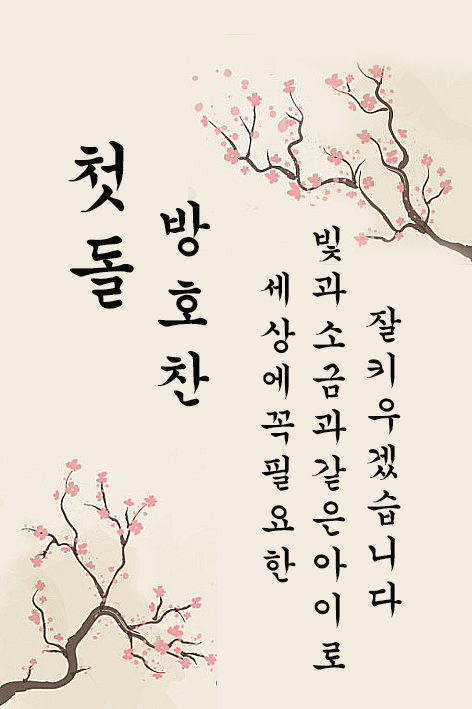 첫돌
방호찬
세상에꼭필요한
빛과소금과같은아이로
잘키우겠습니다